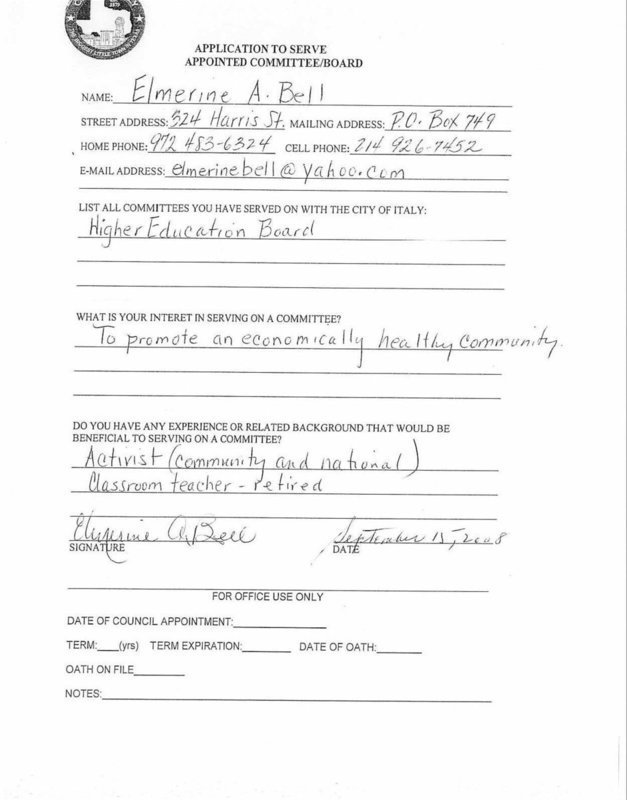 THE BIGGEST LITTLE TOWN IN TEXAS
APPLICATION TO SERVE
APPOINTED COMMITTEE/BOARD
NAME: Elmerine A. Bell
STREET ADDRESS: 524 Harris St. MAILING ADDRESS: P.O. Box 749
HOME PHONE: 972 483-6324 CELL PHONE: 214 926-7452
E-MAIL ADDRESS: elmerinebell@yahoo.com
LIST ALL COMMITTEES YOU HAVE SERVED ON WITH THE CITY OF ITALY:
Higher Education Board
WHAT IS YOUR INTERET IN SERVING ON A COMMITTEE?
To promote an economically healthy community.
DO YOU HAVE ANY EXPERIENCE OR RELATED BACKGROUND THAT WOULD BE
BENEFICIAL TO SERVING ON A COMMITTEE?
Activist (community and national)
Classroom teacher - retired
Elmerine A. Bell September 15, 2008
SIGNATURE DATE
FOR OFFICE USE ONLY
DATE OF COUNCIL APPOINTMENT:
TERM:____(yrs) TERM EXPIRATION: DATE OF OATH:
OATH ON FILE
NOTES: